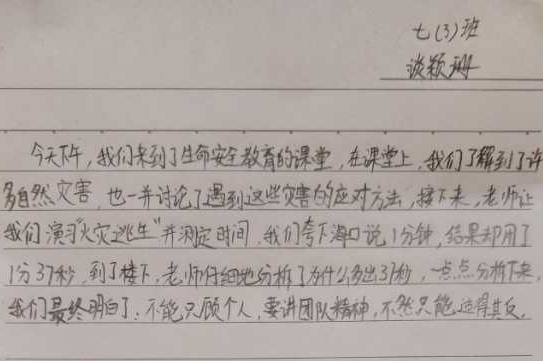 七(3)班
谈颖珊
今天下午，我们来到了生命安全教育的课堂，在课堂上，我们了解到了许
多自然灾害，也一并讨论了遇到这些灾害的应对方法，接下来，老师让
我们演习"火灾逃生"并测定时间，我们夸下海口说1分钟，结果却用了
1分37秒，到了楼下，老师仔细地分析了为什么多出37秒，一点点分析下来，
我们最终明白了：不能只顾个人，要讲团队精神，不然只能适得其反。